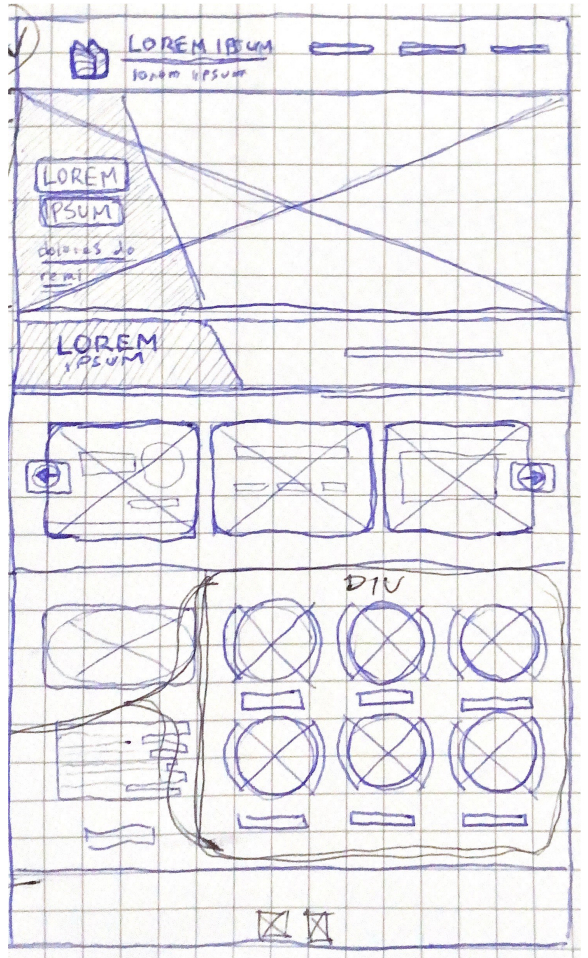 LOREM IPSUM
lorem ipsum
LOREM
IPSUM
dolores do
remi
LOREM
IPSUM
DIV